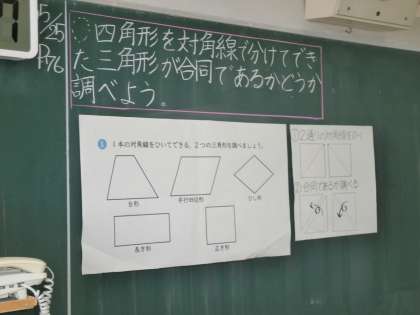 5/25
P.76
四角形を対角線でわけてでき
た三角形が合同であるかどうか
調べよう。
1 1本の対角線をひいてできる、2つの三角形を調べましょう。
台形
平行四辺形
ひし形
長方形
正方形
①2通りの対角線をひく
②合同であるか調べる